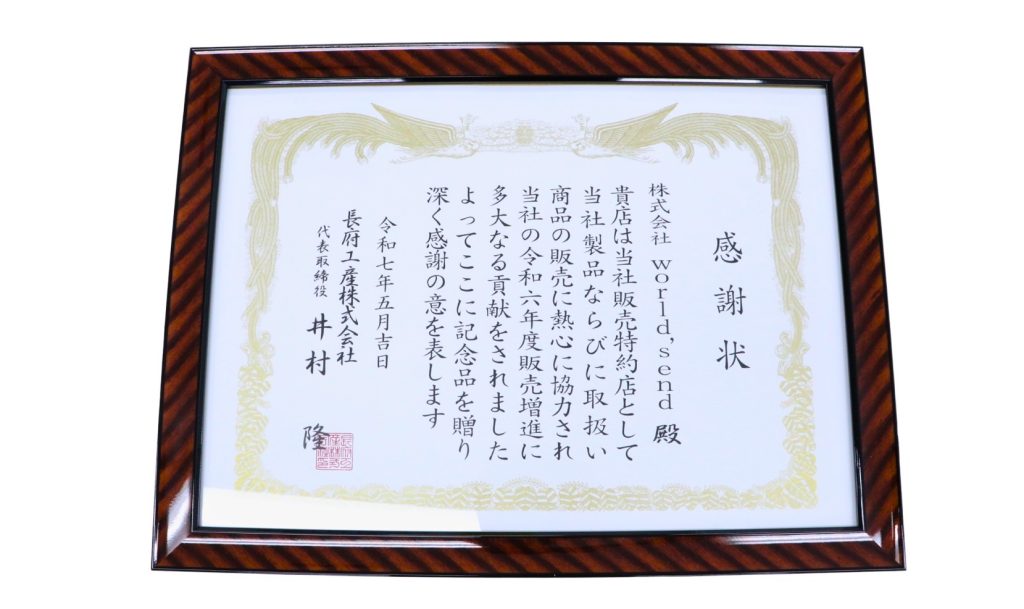 感謝状
株式会社 world,send 殿
貴店は当社販売特約店として
当社製品ならびに取扱い
商品の販売に熱心に協力され
当社の令和六年度販売増進に
多大なる貢献をされました
よってここに記念品を贈り
深く感謝の意を表します
令和七年五月吉日
長府工産株式会社
代表取締役 井村 隆